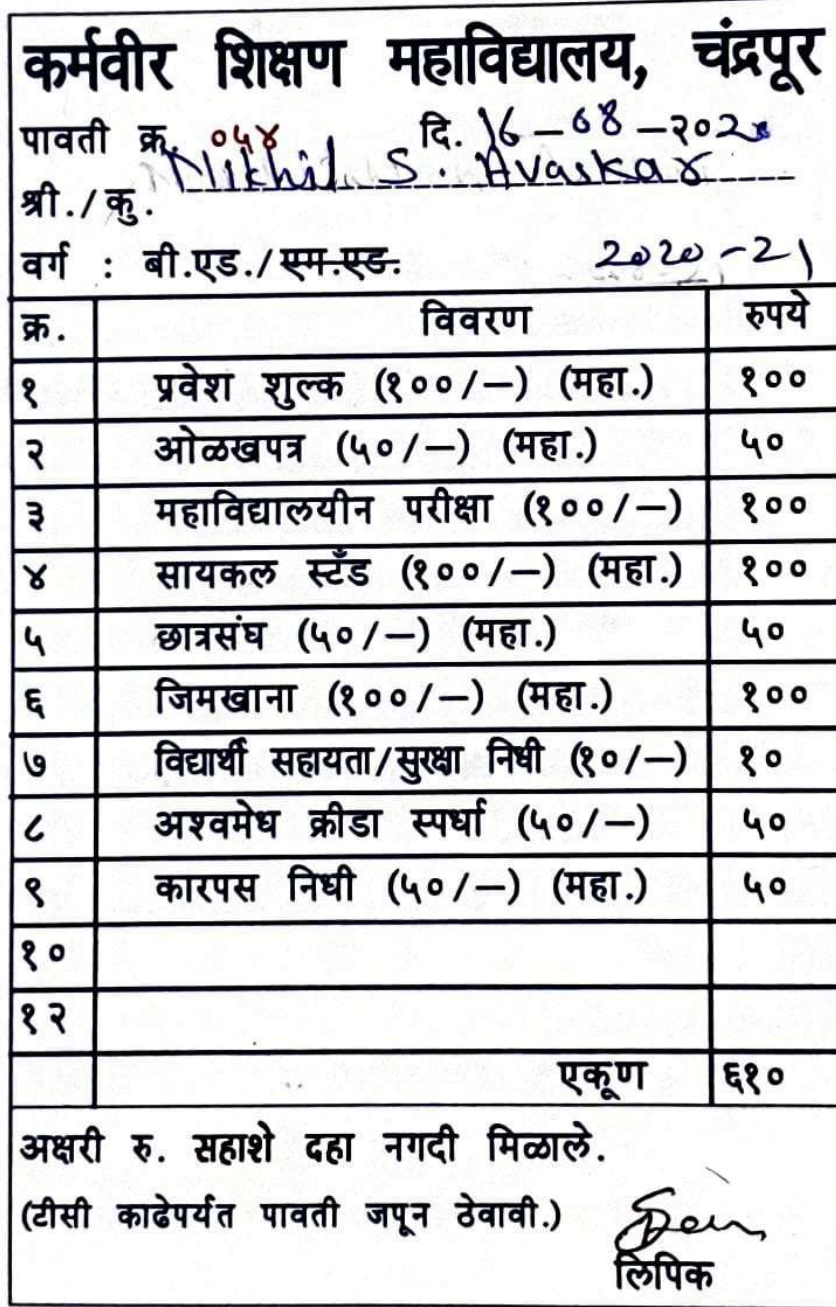 कर्मवीर शिक्षण महाविद्यालय, चंद्रपूर
पावती क्र. ०५४ दि. 16-08-२०२
श्री./कु. Nikhil S. Avaskar
वर्ग : बी.एड./एम.एड. 2020-21
क्र. विवरण रुपये
१ प्रवेश शुल्क (१००/—) (महा.) १००
२ ओळखपत्र (५०/—) (महा.) ५०
३ महाविद्यालयीन परीक्षा (१००/—) १००
४ सायकल स्टँड (१००/—) (महा.) १००
५ छात्रसंघ (५०/—) (महा.) ५०
६ जिमखाना (१००/—) (महा.) १००
७ विद्यार्थी सहायता/सुरक्षा निधी (१०/—) १०
८ अश्वमेध क्रीडा स्पर्धा (५०/—) ५०
९ कारपस निधी (५०/—) (महा.) ५०
१०
१२
एकूण ६१०
अक्षरी रु. सहाशे दहा नगदी मिळाले.
(टीसी काढेपर्यत पावती जपून ठेवावी.)
लिपिक